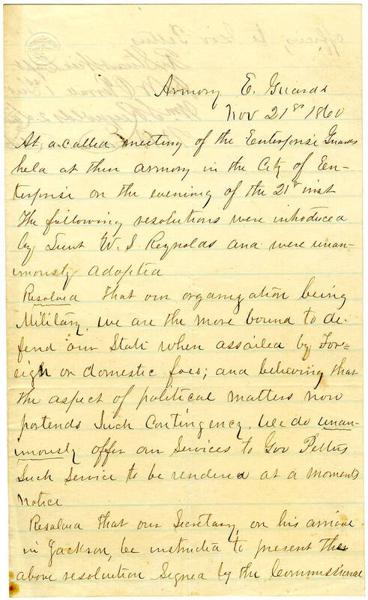 Armory E. Guards
Nov 21st 1860
At a called meeting of the Eenterprise Guards
held at their armory in the City of Een-
terprise on the evening of the 21st inst
The following resolutions were introduced
by Lieut W. J Reynolds and were unan-
imously adopted
Resolved That our organization being
Military, we are the more bound to de-
fend our State when assailed by For-
eign or domestic foes; and believing that
the aspect of political matters now
portends such Contingency. We do unan-
imously offer our Services to Gov Pettus
Such service to be rendered at a moments
notice
Resolved That our Secretary, on his arrival
in Jackson, be instructed to present the
above resolution Signed by the Commissioned